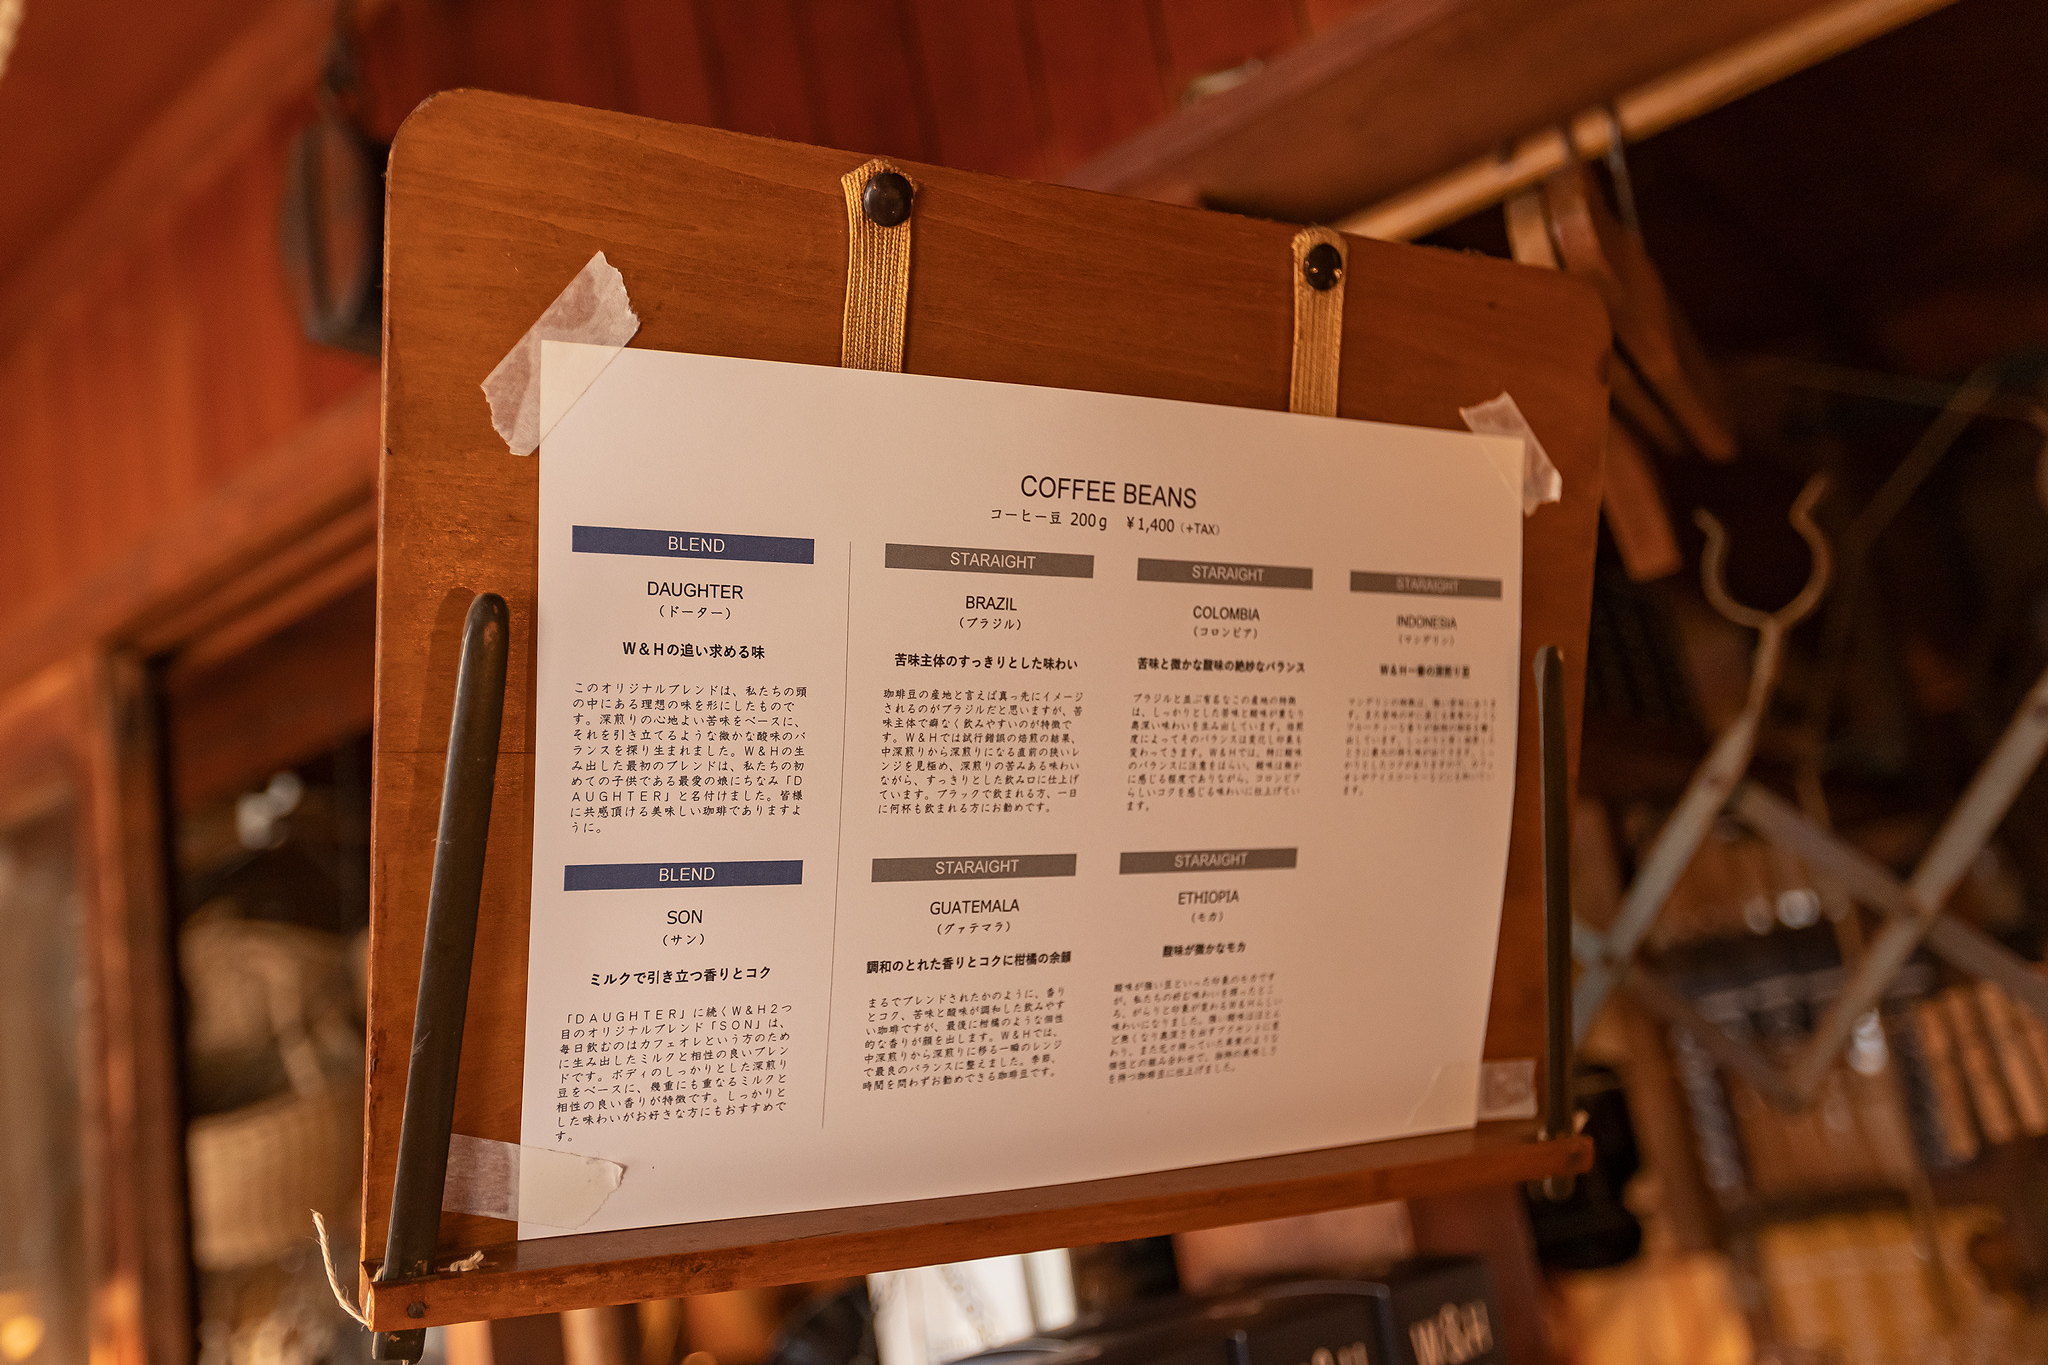 COFFEE BEANS
コーヒー豆 200g ¥1,400 (+TAX)
BLEND
DAUGHTER
(ドーター)
W&Hの追い求める味
このオリジナルブレンドは、私たちの頭
の中にある理想の味を形にしたもので
す。深煎りの心地よい苦味をベースに、
それを引き立てるような微かな酸味のバ
ランスを探り生まれました。W&Hの生
み出した最初のブレンドは、私たちの初
めての子供である最愛の娘にちなみ「D
AUGHTER」と名付けました。皆様
に共感頂ける美味しい珈琲でありますよ
うに。
BLEND
SON
(サン)
ミルクで引き立つ香りとコク
「DAUGHTER」に続くW&H2つ
目のオリジナルブレンド「SON」は、
毎日飲むのはカフェオレという方のため
に生み出したミルクと相性の良いブレン
ドです。ボディのしっかりとした深煎り
豆をベースに、幾重にも重なるミルクと
相性の良い香りが特徴です。しっかりと
した味わいがお好きな方にもおすすめで
す。
STARAIGHT
BRAZIL
(ブラジル)
苦味主体のすっきりとした味わい
珈琲豆の産地と言えば真っ先にイメージ
されるのがブラジルだと思いますが、苦
味主体で癖なく飲みやすいのが特徴で
す。W&Hでは試行錯誤の焙煎の結果、
中深煎りから深煎りになる直前の狭いレ
ンジを見極め、深煎りの苦みある味わい
ながら、すっきりとした飲み口に仕上げ
ています。ブラックで飲まれる方、一日
に何杯も飲まれる方にお勧めです。
STARAIGHT
COLOMBIA
(コロンビア)
苦味と微かな酸味の絶妙なバランス
ブラジルと並ぶ有名なこの産地の特徴
は、しっかりとした苦味と酸味が重なり
奥深い味わいを生み出しています。焙煎
度によってそのバランスは変化し印象も
変わってきます。W&Hでは、特に酸味
のバランスに注意をはらい、酸味は微か
に感じる程度でありながら、コロンビア
らしいコクを感じる味わいに仕上げてい
ます。
STARAIGHT
INDONESIA
(マンデリン)
W&H一番の深煎り豆
STARAIGHT
GUATEMALA
(グァテマラ)
調和のとれた香りとコクに柑橘の余韻
まるでブレンドされたかのように、香り
とコク、苦味と酸味が調和した飲みやす
い珈琲ですが、最後に柑橘のような個性
的な香りが顔を出します。W&Hでは、
中深煎りから深煎りに移る一瞬のレンジ
で最良のバランスに整えました。季節、
時間を問わずお勧めできる珈琲豆です。
STARAIGHT
ETHIOPIA
(モカ)
酸味が微かなモカ
酸味が強い豆といった印象のモカです
が、私たちの好む味わいを探ったとこ
ろ、がらりと印象が変わるW&Hらしい
を持つ珈琲豆に仕上げました。
W&H